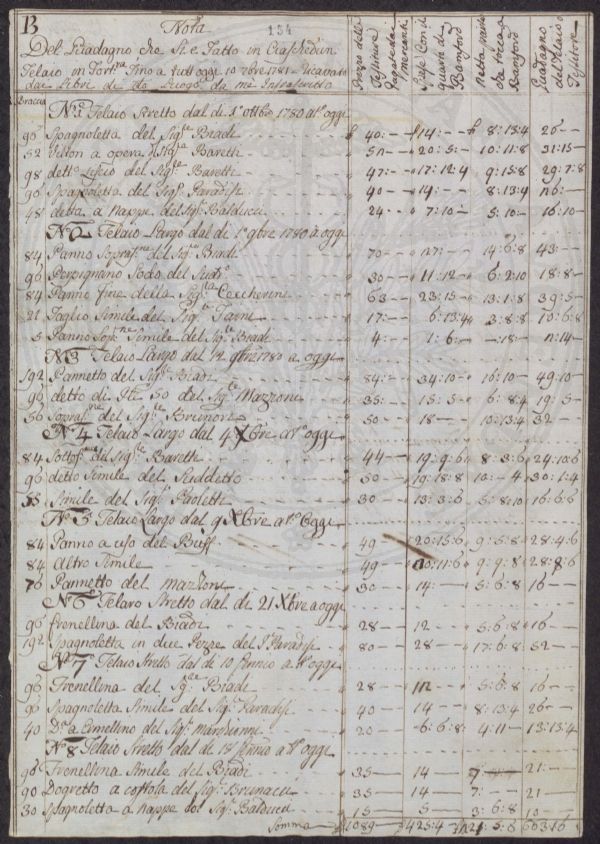 B Nota 134
Del Guadagno che si è fatto in Ciaschedun
Telaio in Fort.na Fino a tutt'oggi 10 7bre 1781 Ricavato
dai Libri di do Luogo da me Infrascritto
Prezzo delle Tessiture pagate da mercanti
Spese Con il quarto di Bamford
Netta parte che tocca a Bamford
Guadagno del Telaio o Tessitore
Braccia
No. 1 Telaio Stretto dal dì 1 ottbre 1780 al d'oggi
96 Spagnoletta del Sigr Biadi 40:— 14:— 8:13:4 26—
52 Velton a opera di Sigr Baretti 50— 20:5:— 10:11:8 31:15—
98 detto Liscio del Sigr Baretti 47:— 17:12:4 9:15:8 29:7:8
90 Spagnoletta del Sigr Paradisi 40— 14:— 8:13:4 26:—
48 detta a Nappe del Sigr Balducci 24— 7:10— 5:10— 16:10—
No. 2 Telaio Largo dal dì 1 9bre 1780 a oggi
84 Panno Sopraf.ne del Sigr Biadi 70— 27:— 14:6:8 43:—
96 Perpignano Sodo del Sudo 30— 11:12— 6:2:10 18:8—
84 Panno Fine della Siga Ceccherini 63— 23:15— 13:1:8 39:5—
21 Taglio Simile del Sigr Tarni 17:— 6:13:4 3:8:8 10:6:8
5 Panno Sop.ne Simile del Sigr Biadi 4:— 1:6:— —18— 2:14—
No. 3 Telaio Largo del 12 9bre 1780 a oggi
192 Pannetto del Sigr Biadi 84:— 34:10— 16:10— 49:10—
96 detto di Ptte 50 del Sigr Mazzoni 35— 15:5— 6:8:4 19:5—
56 Sopraf.ne del Sigr Brunori 50— 18— 10:13:4 32—
No. 4 Telaio Largo dal 4 Xbre al d'oggi
84 Sottof.ne del Sigr Baretti 44— 19:9:6 8:3:6 24:10:6
96 detto Simile del Suddetto 50 19:18:8 10:—4 30:1:4
55 Simile del Sigr Paoletti 30 13:3:6 5:8:10 16:6:6
No. 5 Telaio Largo dal 9 Xbre a d'oggi
84 Panno a uso del Buff 49 20:15:6 9:5:8 28:4:6
84 Altro Simile 49 20:11:6 9:9:8 28:8:6
76 Pannetto del Mazzoni 30 14:— 5:6:8 16—
No. 6 Telaro Stretto dal dì 21 Xbre a oggi
96 Frenellina del Biadi 28 12 5:6:8 16—
192 Spagnoletta in due Pezze del Sr Paradisi 80 28 17:6:8 52—
No. 7 Telaio Stretto dal dì 10 Gennaio a d'oggi
96 Frenellina del Sigr Biadi 28 12 5:6:8 16—
96 Spagnoletta Simile del Sigr Paradisi 40 14 8:13:4 26—
40 Da a Cornettino del Sigr 20 6:6:8 4:11— 13:13:4
No. 8 Telaio Stretto dal dì 18 Gennaio a d'oggi
98 Frenellina Simile del Biadi 35 14 7 21—
90 Dogretto a costola del Sigr Brunacci 35 14 7:— 21
30 Spagnoletta a Nappe del Sigr Balducci 15 5 3:6:8 10—
Somma 1089— 425:4 221:5:6 663:16